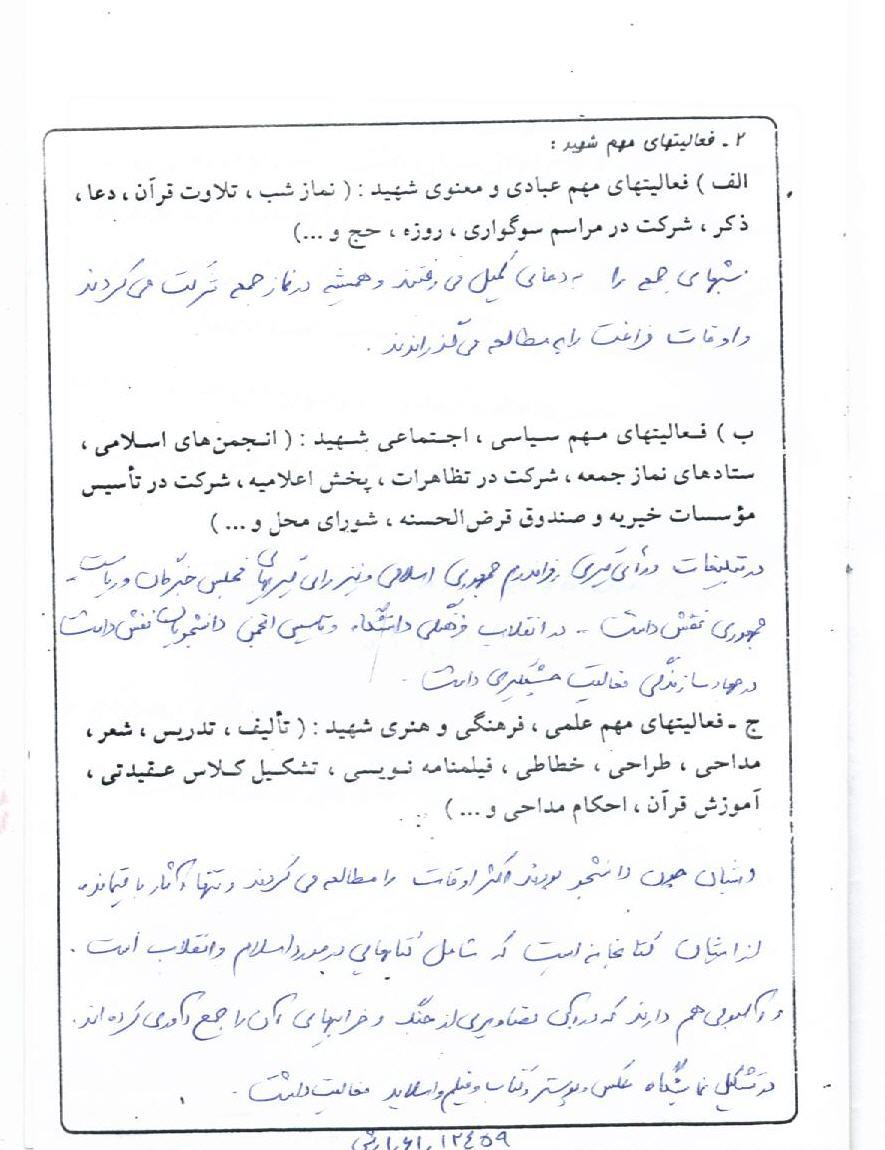 ۲ ـ فعالیتهای مهم شهید :
الف ) فعالیتهای مهم عبادی و معنوی شهید : ( نماز شب ، تلاوت قرآن ، دعا ،
ذکر ، شرکت در مراسم سوگواری ، روزه ، حج و ...)
شبهای جمعه را به دعای کمیل می رفتند و همیشه در نماز جمعه شرکت می کردند
و اوقات فراغت را به مطالعه می گذراندند .
ب ) فعالیتهای مهم سیاسی ، اجتماعی شهید : ( انجمن‌های اسلامی ،
ستادهای نماز جمعه ، شرکت در تظاهرات ، پخش اعلامیه ، شرکت در تأسیس
مؤسسات خیریه و صندوق قرض‌الحسنه ، شورای محل و ... )
در تبلیغات و رأی گیری رفراندم جمهوری اسلامی و نیز رای گیریهای مجلس خبرگان و ریاست
جمهوری نقش داشت - در انقلاب فرهنگی دانشگاه و تاسیس انجمن دانشجویان نقش داشت
در جهاد سازندگی فعالیت چشمگیری داشت .
ج ـ فعالیتهای مهم علمی ، فرهنگی و هنری شهید : ( تألیف ، تدریس ، شعر ،
مداحی ، طراحی ، خطاطی ، فیلمنامه نویسی ، تشکیل کلاس عقیدتی ،
آموزش قرآن ، احکام مداحی و ... ) :
ایشان چون دانشجو بودند اکثر اوقات را مطالعه می کردند و تنها آثار باقیمانده
از ایشان کتابخانه است که شامل کتابهایی در مورد اسلام و انقلاب است .
و آلبومی هم دارند که در آن تصاویری از جنگ و خرابیهای آن را جمع آوری کرده اند .
در تشکیل نمایشگاه عکس و پوستر و کتاب و فیلم و اسلاید فعالیت داشت .